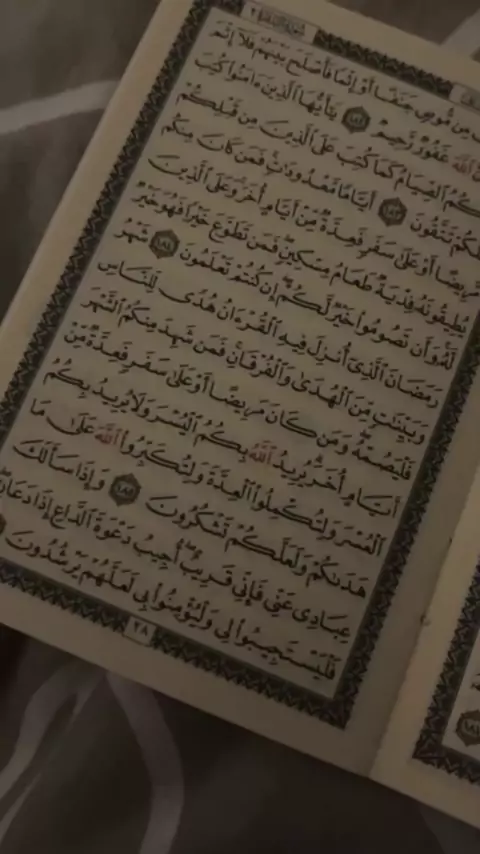 سُورَةُ البَقَرَةِ ٢
مِن مُّوصٍ جَنَفًا أَوْ إِثْمًا فَأَصْلَحَ بَيْنَهُمْ فَلَآ إِثْمَ
ٱللَّهَ غَفُورٌ رَّحِيمٌ ١٨٢ يَٰٓأَيُّهَا ٱلَّذِينَ ءَامَنُوا۟ كُتِبَ
كُمُ ٱلصِّيَامُ كَمَا كُتِبَ عَلَى ٱلَّذِينَ مِن قَبْلِكُمْ
لَّكُمْ تَتَّقُونَ ١٨٣ أَيَّامًا مَّعْدُودَٰتٍ فَمَن كَانَ مِنكُم
مَّرِيضًا أَوْ عَلَىٰ سَفَرٍ فَعِدَّةٌ مِّنْ أَيَّامٍ أُخَرَ وَعَلَى ٱلَّذِينَ
يُطِيقُونَهُۥ فِدْيَةٌ طَعَامُ مِسْكِينٍ فَمَن تَطَوَّعَ خَيْرًا فَهُوَ خَيْرٌ
لَّهُۥ وَأَن تَصُومُوا۟ خَيْرٌ لَّكُمْ إِن كُنتُمْ تَعْلَمُونَ ١٨٤ شَهْرُ
رَمَضَانَ ٱلَّذِىٓ أُنزِلَ فِيهِ ٱلْقُرْءَانُ هُدًى لِّلنَّاسِ
وَبَيِّنَٰتٍ مِّنَ ٱلْهُدَىٰ وَٱلْفُرْقَانِ فَمَن شَهِدَ مِنكُمُ ٱلشَّهْرَ
فَلْيَصُمْهُ وَمَن كَانَ مَرِيضًا أَوْ عَلَىٰ سَفَرٍ فَعِدَّةٌ مِّنْ
أَيَّامٍ أُخَرَ يُرِيدُ ٱللَّهُ بِكُمُ ٱلْيُسْرَ وَلَا يُرِيدُ بِكُمُ
ٱلْعُسْرَ وَلِتُكْمِلُوا۟ ٱلْعِدَّةَ وَلِتُكَبِّرُوا۟ ٱللَّهَ عَلَىٰ مَا
هَدَىٰكُمْ وَلَعَلَّكُمْ تَشْكُرُونَ ١٨٥ وَإِذَا سَأَلَكَ
عِبَادِى عَنِّى فَإِنِّى قَرِيبٌ أُجِيبُ دَعْوَةَ ٱلدَّاعِ إِذَا دَعَانِ
فَلْيَسْتَجِيبُوا۟ لِى وَلْيُؤْمِنُوا۟ بِى لَعَلَّهُمْ يَرْشُدُونَ
٢٨